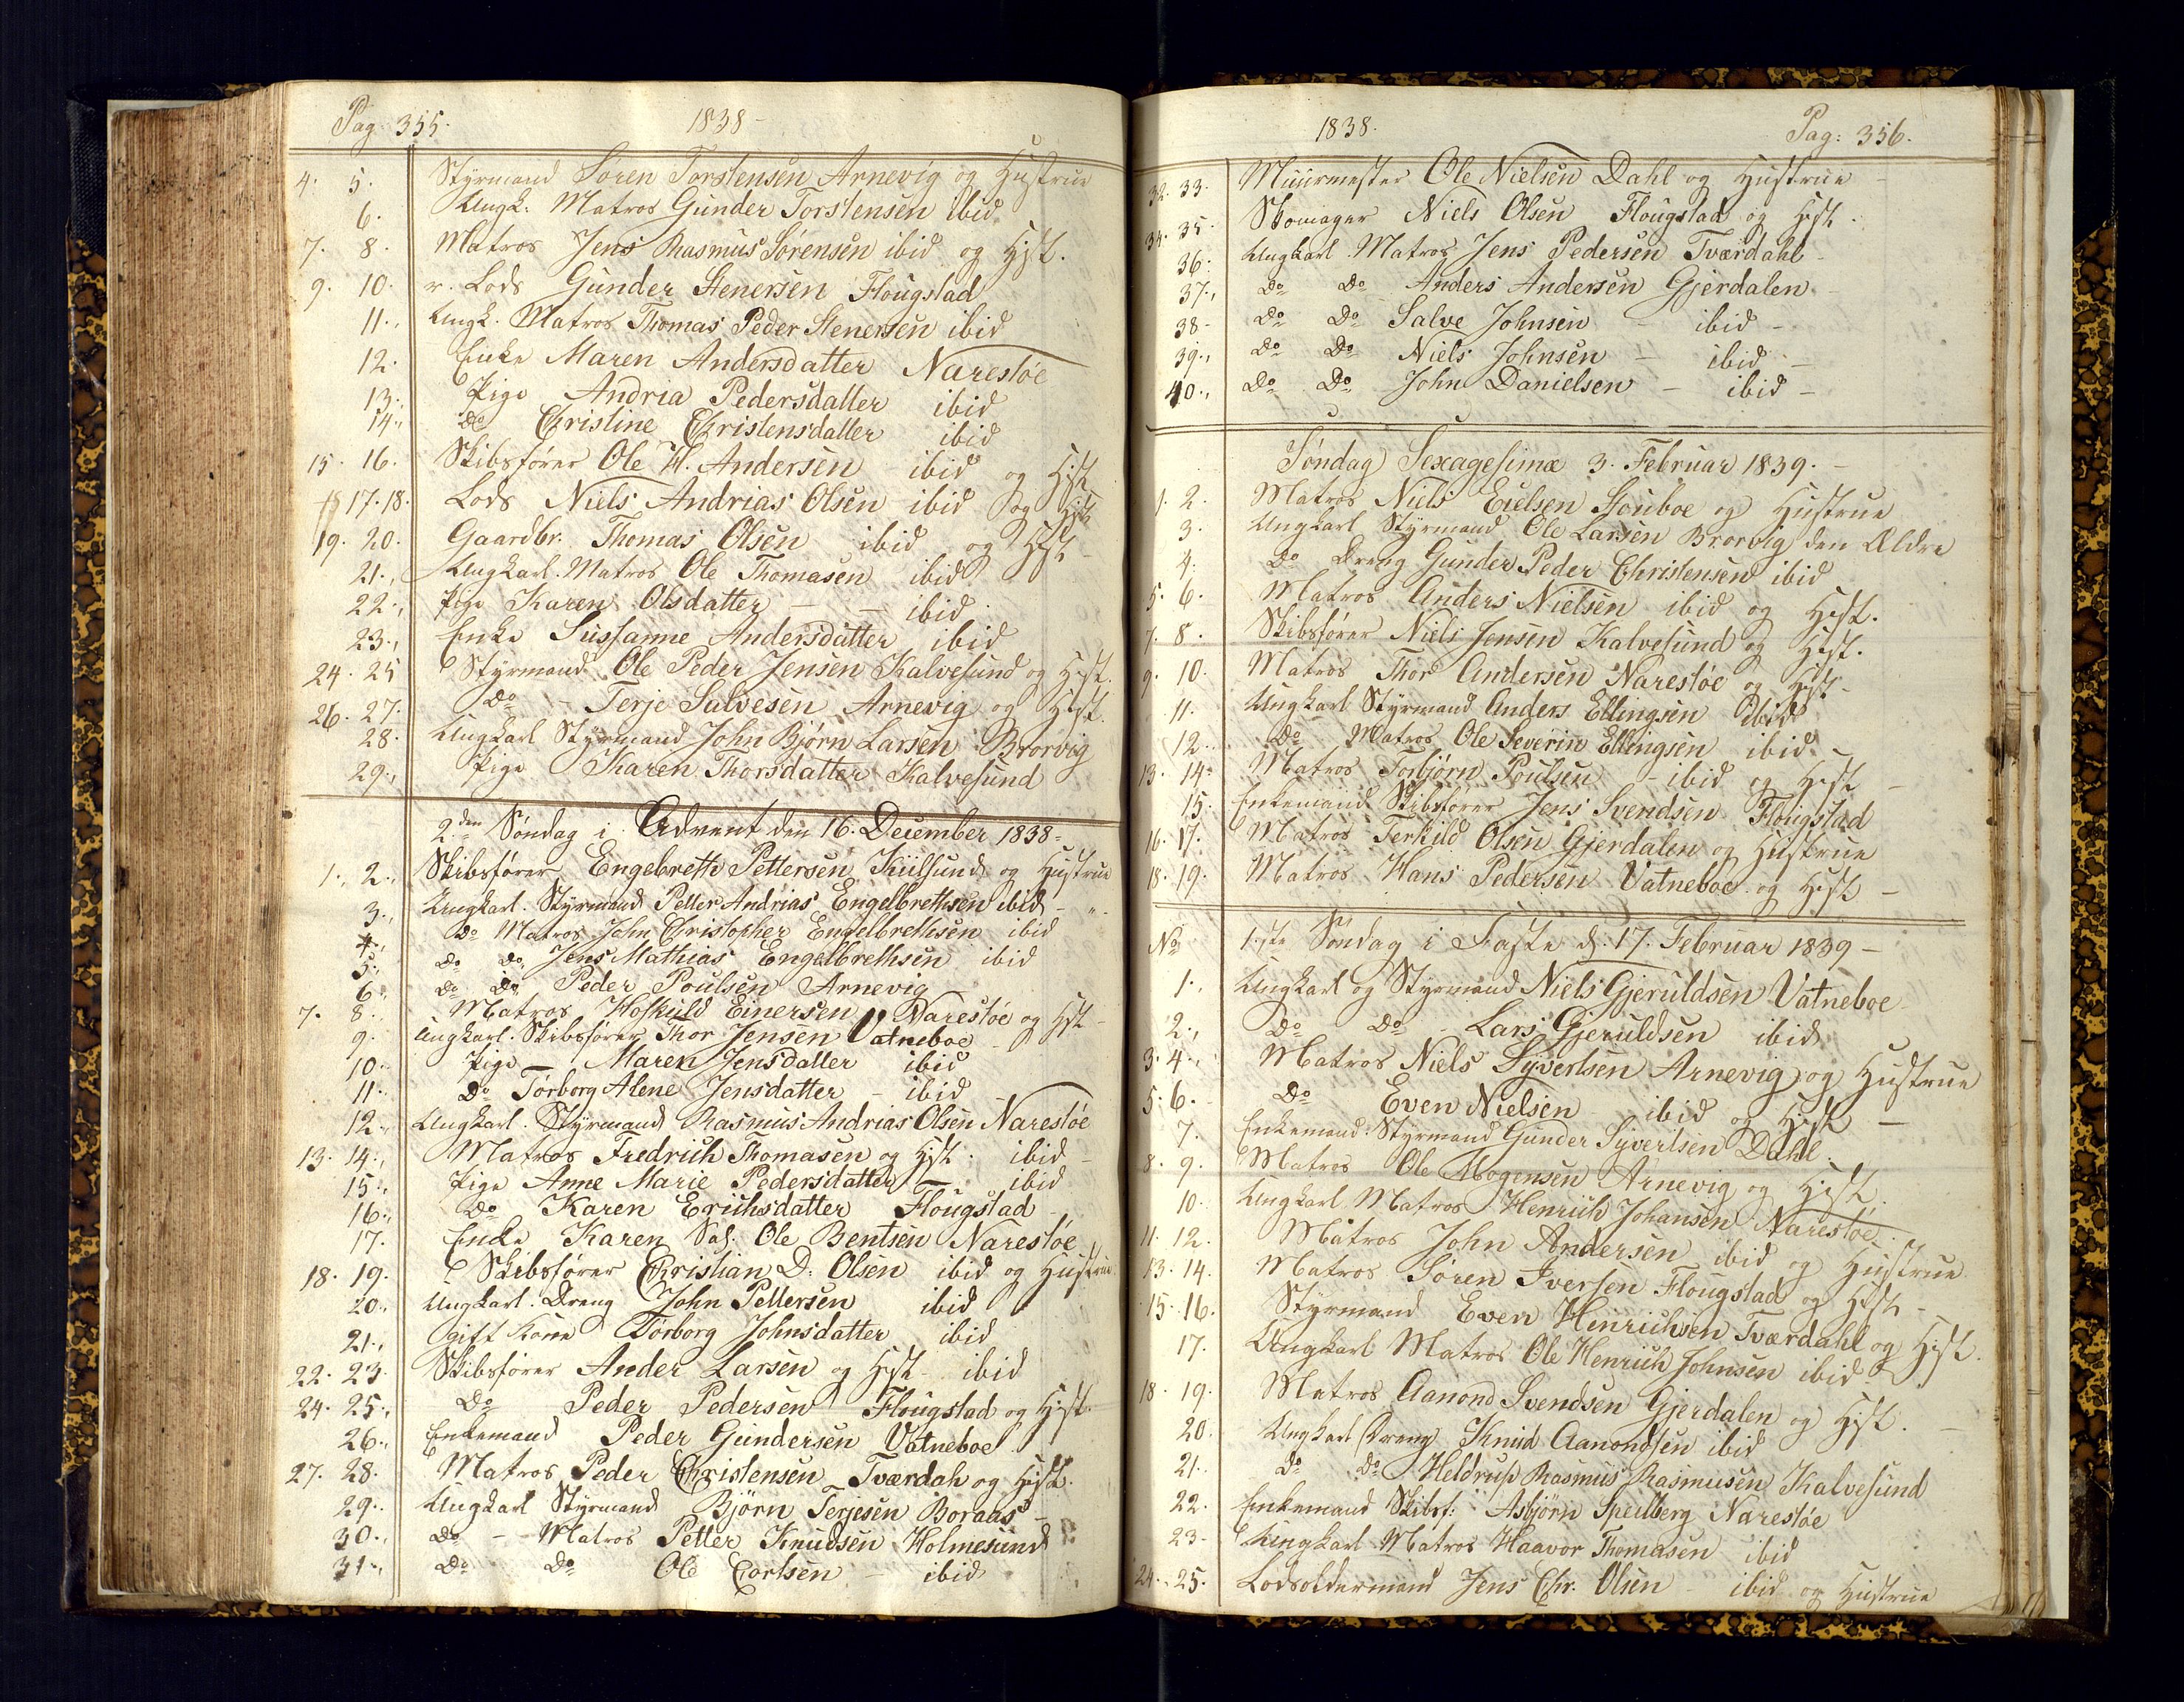 Pag: 355. 1838 -
4. 5. Styrmand Søren Torstensen Arnevig og Hustrue
6. Ungk. Matros Gunder Torstensen ibid.
7. 8. Matros Jens Rasmus Sørensen ibid og Hst.
9. 10. Lods Gunder Stenersen Flougstad
11. Ungk. Matros Thomas Peder Stenersen ibid
12. Enke Maren Andersdatter Narestøe
13. Pige Andria Pedersdatter ibid
14. Do Christine Christensdatter ibid
15. 16. Skibsfører Ole H. Andersen ibid og Hst.
17. 18. Lods Niels Andrias Olsen ibid og Hst
19. 20. Gaardbr. Thomas Olsen ibid og Hst
21. Ungkarl. Matros Ole Thomasen ibid
22. Pige Karen Olsdatter — — ibid
23. Enke Sussanne Andersdatter ibid
24. 25 Styrmand Ole Peder Jensen Kalvesund og Hst.
26. 27. Do - Terje Salvesen Arnevig og Hst.
28. Ungkarl Styrmand John Bjørn Larsen Brorvig
29. Pige Karen Thorsdatter Kalvesund
2den Søndag i Advent den 16. December 1838-
1. 2. Skibsfører Engebreth Pettersen Kiilsund og Hustrue
3. Ungkarl. Styrmand Petter Andrias Engelbrethsen ibid - " -
4. Do Matros John Christopher Engelbrethsen ibid
5. Do Do Jens Mathias Engelbrethsen ibid
6. Do Do Peder Poulsen Arnevig
7. 8. Matros Hoskuld Einersen Narestøe og Hst -
9. Ungkarl. Skibsfører Thor Jensen Vatneboe
10. Pige Maren Jensdatter ibid
11. Do Torborg Alene Jensdatter - ibid
12. Ungkarl. Styrmand Rasmus Andrias Olsen Narestøe
13. 14. Matros Fredrich Thomasen og Hst. ibid -
15. Pige Anne Marie Pedersdatter — ibid
16. Do Karen Erichsdatter Flougstad
17. Enke Karen Sal. Ole Bentsen Narestøe
18. 19. Skibsfører Christian D. Olsen ibid og Hustrue
20. Ungkarl. Dreng John Pettersen ibid
21. gift Kone Torborg Johnsdatter ibid
22. 23. Skibsfører Ander Larsen og Hst - ibid
24. 25. Do Peder Pedersen Flougstad og Hst.
26. Enkemand Peder Gundersen Vatneboe
27. 28. Matros Peder Christensen Tværdah og Hst.
29. Ungkarl Styrmand Bjørn Terjesen Boraas -
30. Do - Matros Petter Knudsen Holmesund
31. Do Do Ole Corlsen — ibid
1838. Pag: 356.
32. 33. Muurmester Ole Nielsen Dahl og Hustrue -
34. 35. Skomager Niels Olsen Flougstad og Hst.
36. Ungkarl Matros Jens Pedersen Tværdahl -
37. Do Do Anders Andersen Gjerdalen -
38 - Do Do Salve Johnsen - ibid -
39. Do Do Niels Johnsen — ibid -
40. Do Do John Danielsen — ibid -
Søndag Sexagesimæ 3. Februar 1839. -
1. 2. Matros Niels Eielsen Houboe og Hustrue
3. Ungkarl Styrmand Ole Larsen Brorvig den Ældre
4. Do Dreng Gunder Peder Christensen ibid
5. 6. Matros Anders Nielsen ibid og Hst.
7. 8. Skibsfører Niels Jensen Kalvesund og Hst.
9. 10. Matros Thor Andersen Narestøe og Hst -
11. Ungkarl Styrmand Anders Ellingsen ibid
12. Do Matros Ole Severin Ellingsen ibid -
13. 14. Matros Torbjørn Poulsen - ibid og Hst -
15. Enkemand Skibsfører Jens Svendsen Flougstad
16. 17. Matros Terkild Olsen Gjerdalen og Hustrue
18. 19. Matros Hans Pedersen Vatneboe og Hst —
No 1.ste Søndag i Faste d. 17. Februar 1839 -
1. Ungkarl og Styrmand Niels Gjeruldsen Vatneboe
2. Do Do - Lars Gjeruldsen ibid
3. 4. Matros Niels Syvertsen Arnevig og Hustrue
5. 6. Do Even Nielsen - ibid og Hst —
7. Enkemand. Styrmand Gunder Syvertsen Dahl.
8. 9. Matros Ole Mogensen Arnevig og Hst.
10. Ungkarl Matros Henrich Johansen Narestøe
11. 12. Matros John Andersen ibid og Hustrue
13. 14. Matros Søren Iversen Flougstad og Hst -
15. 16. Styrmand Even Henrichsen Tværdahl og Hst.
17. Ungkarl Matros Ole Henrich Johnsen ibid -
18. 19. Matros Aanond Svendsen Gjerdalen og Hst. —
20. Ungkarl (Dreng) Knud Aanondsen ibid
21. Do Do Heldrup Rasmus Rasmusen Kalvesund
22. Enkemand Skibsf: Asbjørn Speilberg Narestøe
23. Ungkarl Matros Haavor Thomasen ibid
24. 25. Lodsoldermand Jens Chr. Olsen - ibid og Hustrue